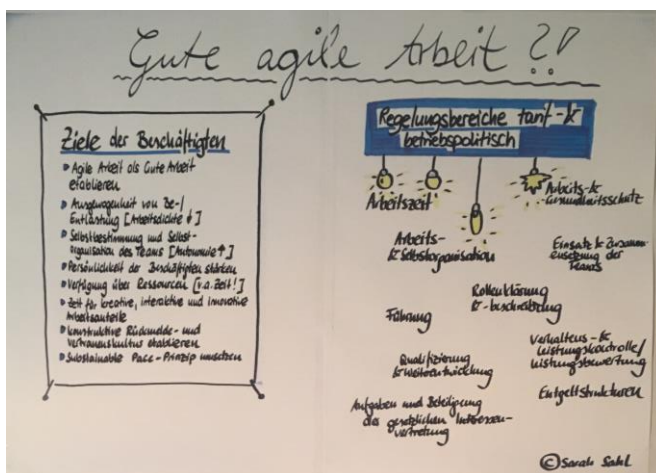 Gute agile Arbeit ?!
Ziele der Beschäftigten
Agile Arbeit als Gute Arbeit
etablieren
Ausgewogenheit von Be-/
Entlastung [Arbeitsdichte ↓]
Selbstbestimmung und Selbst-
organisation des Teams [Autonomie ↑]
Persönlichkeit der Beschäftigten stärken
Verfügung über Ressourcen [v.a. Zeit!]
Zeit für kreative, interaktive und innovative
Arbeitsanteile
konstruktive Rückmelde- und
Vertrauenskultur etablieren
Sustainable Pace-Prinzip umsetzen
Regelungsbereiche tarif- &
betriebspolitisch
Arbeitszeit
Arbeits- &
Gesundheitsschutz
Arbeits-
& Selbstorganisation
Einsatz & Zusammen-
ensetzung der
Teams
Rollenklärung
& -beschreibung
Führung
Verhaltens- &
Leistungskontrolle/
Leistungsbewertung
Qualifizierung
& Weiterentwicklung
Entgeltstrukturen
Aufgaben und Beteiligung
der gesetzlichen Interessen-
vertretung
© Sarah Sahl